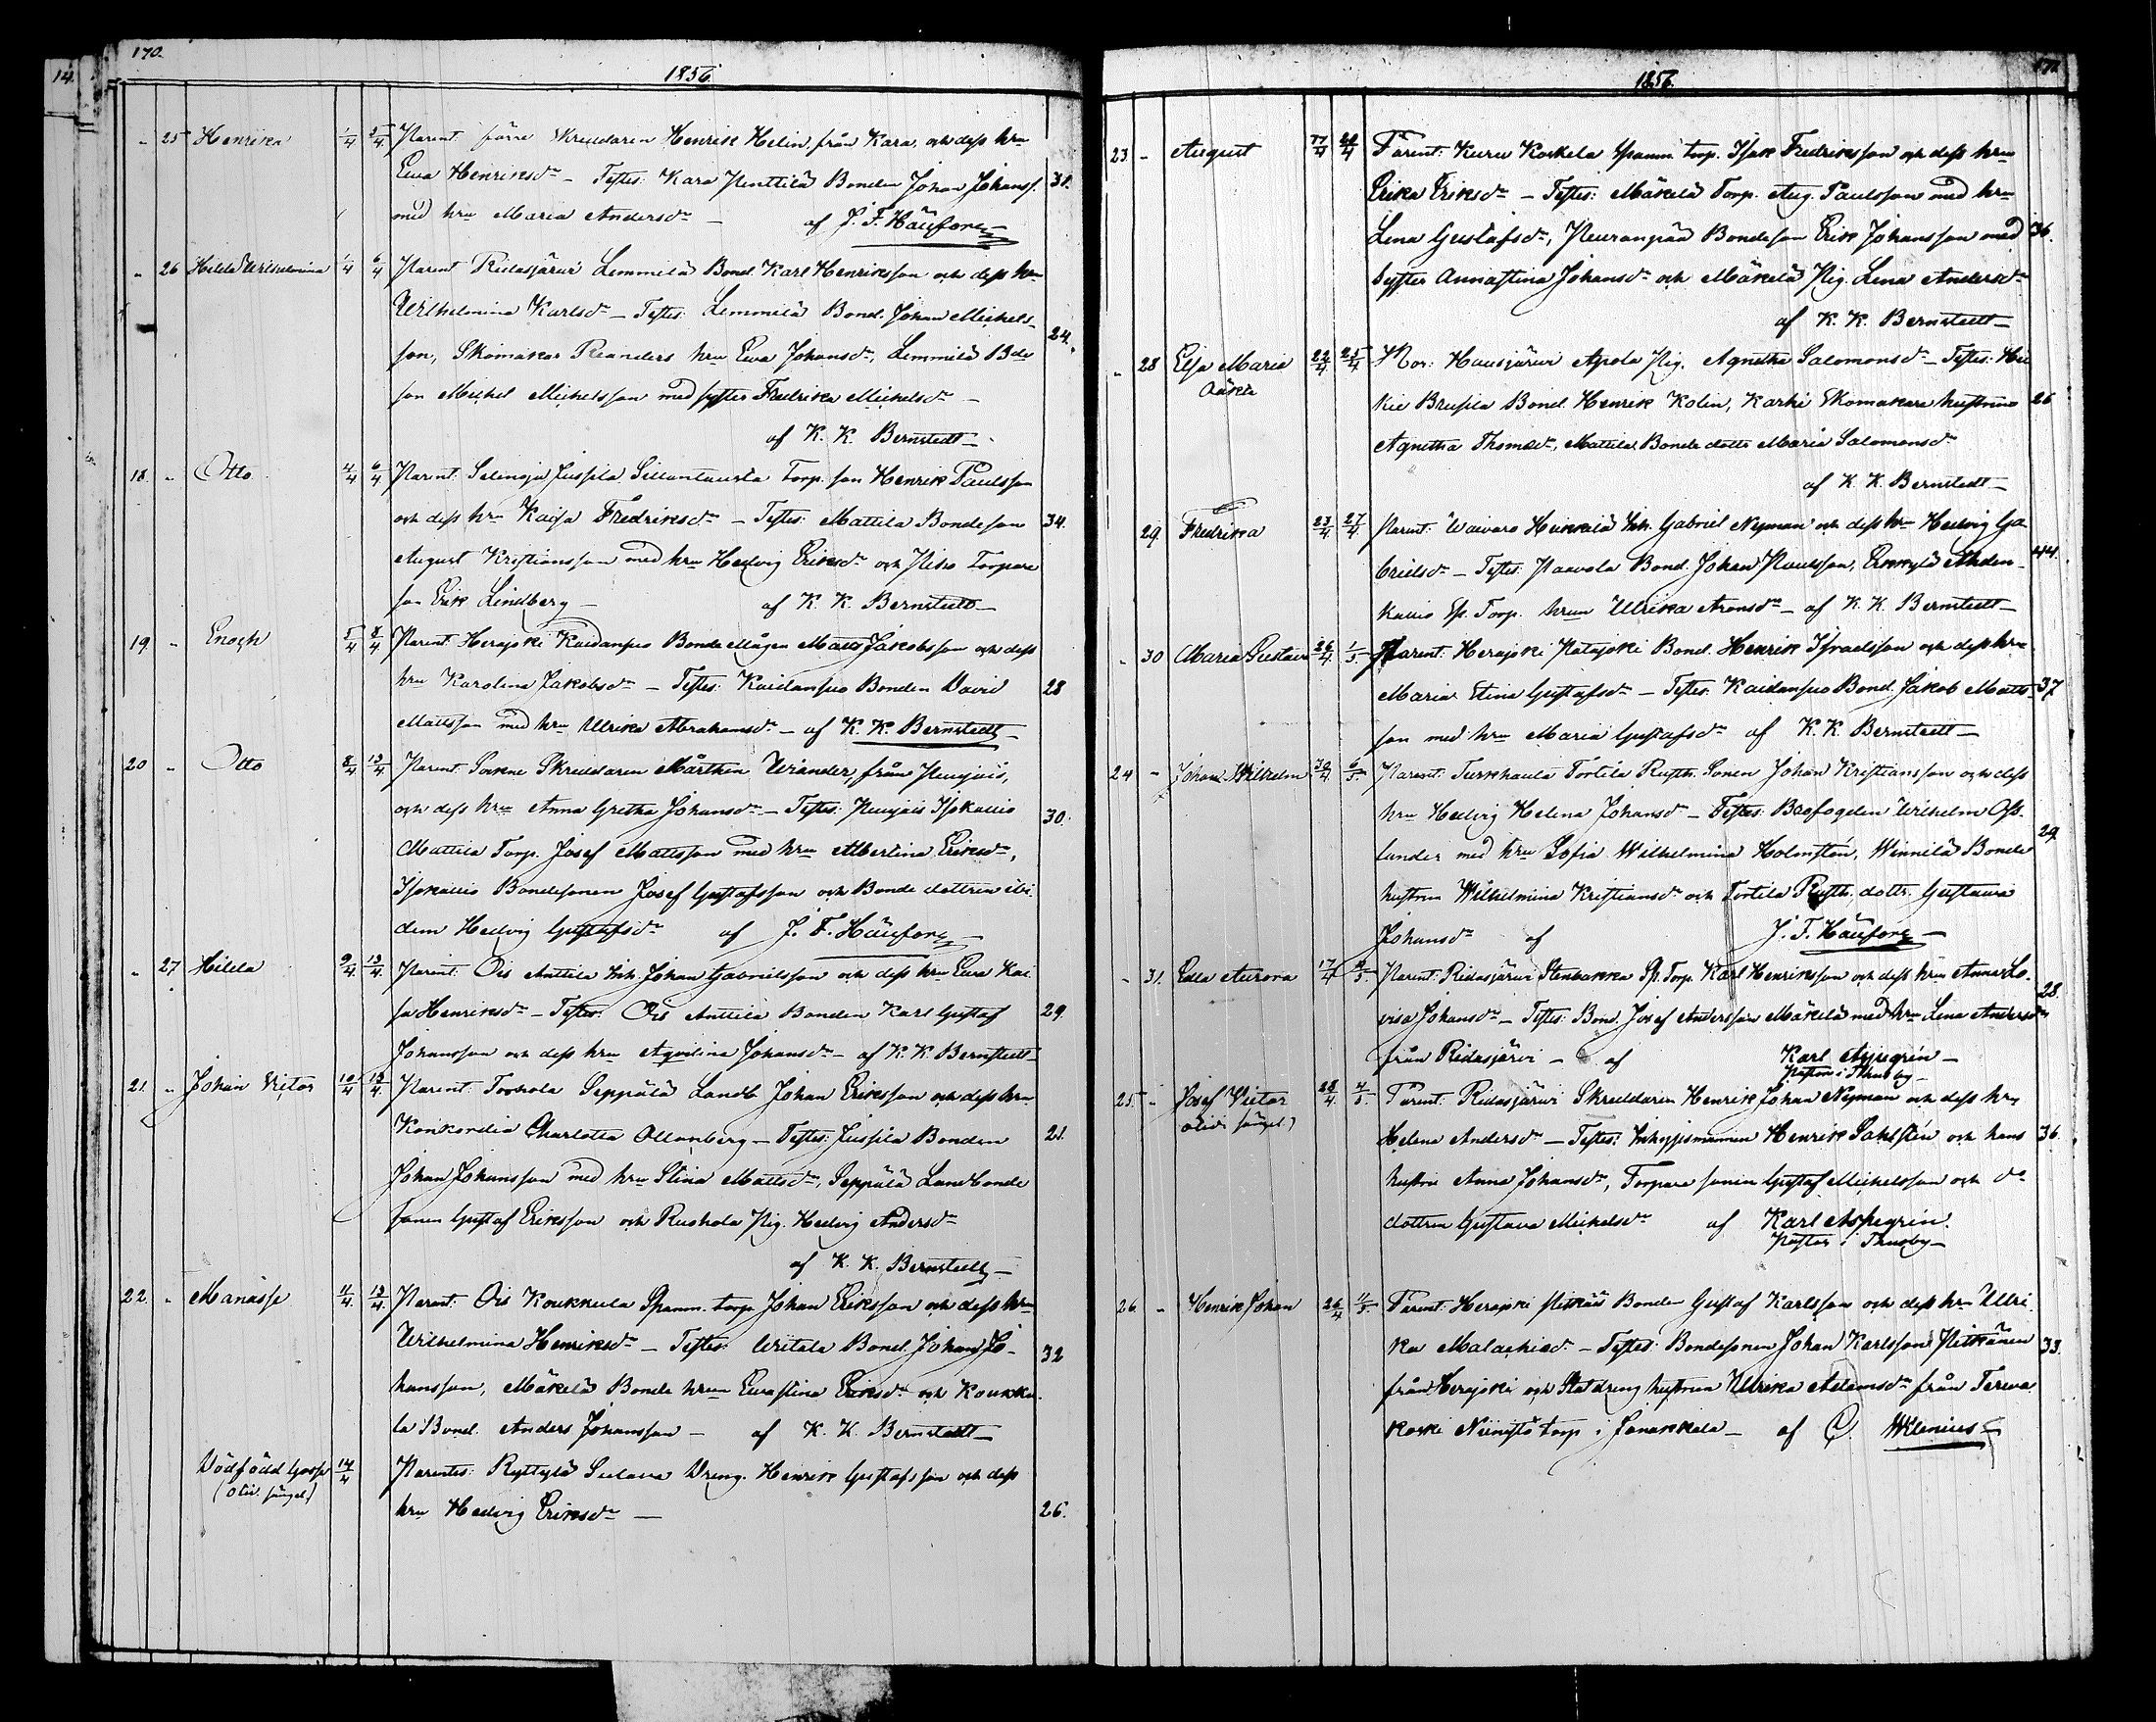 170.
1856.
" 25 Henrika 1/4 5/4 Parent: förre Skreddaren Henrik Helin, från Kara, och dess hru
Ewa Henriksdr – Testes: Kara Penttilä Bonden Johan Johanss. 31.
med hru Maria Andersdr – af J. F. Häufore
" 26 Hilda Wilhelmina 1/4 6/4 Parent: Ridasjärwi Lemmilä Bond. Karl Henriksson och dess hru
Wilhelmina Karlsdr – Testes: Lemmilä Bond. Johan Michels-
son, Skomakar Reanders hru Ewa Johansdr, Lemmilä Bde 24.
son Michel Michelsson med syster Fredrika Michelsdr –
af K. K. Bernstedt –
18. " Otto 4/4 6/4 Parent: Jussila Sillantausta Torp. son Henrik Paulsson
och dess hru Kaisa Fredriksdr – Testes: Mattila Bondeson 34.
August Kristiansson med hru Hedvig Eriksdr och Torpare
son Erik Lindberg – af K. K. Bernstedt –
19. " Enoch 5/4 8/4 Parent: Herajoki Kaidanpuo Bonde Mågen Matts Jakobsson och dess
hru Karolina Jakobsdr – Testes: Kaidanpuo Bonden David 28
Mattsson med hru Ulrika Abrahamsdr – af K. K. Bernstedt –
20 " Otto 8/4 13/4 Parent: Sockne Skreddaren Mårthen Wiander, från Punjois,
och dess hru Anna Gretha Johansdr – Testes: Isokallio 30.
Mattila Torp. Josef Mattsson med hru Albertina Eriksdr,
Isokallio Bondesonen Josef Gustafsson och Bonde dottren ibi-
dem Hedvig Gustafsdr af J. F. Häufore –
" 27 Hilda 9/4 13/4 Parent: Ois Anttila Inh. Johan Gabrielsson och dess hru Ewa Kai-
sa Henriksdr – Testes: Ois Anttila Bonden Karl Gustaf 29.
Johansson och dess hru Aqvilina Johansdr – af K. K. Bernstedt –
21. " Johan Victor 10/4 13/4 Parent: Torhola Seppälä Landb. Johan Eriksson och dess hru
Konkordia Charlotta Ollonberg – Testes: Jussila Bonden 21.
Johan Johansson med hru Stina Mattsdr, Seppälä Landbonde
sonen Gustaf Eriksson och Ruohola Pig. Hedvig Andersdr
af K. K. Bernstedt –
22. " Manasse 11/4 13/4 Parent: Ois Koukkula Spanm. torp. Johan Eriksson och dess hru
Wilhelmina Henriksdr – Testes: Uotala Bond. Johan Jo- 32
hansson, Mäkelä Bonde hrun Ewastina Eriksdr och Koukku-
la Bond. Anders Johansson – af K. K. Bernstedt –
Dödfödd Gosse 14/4 Parentes: Ryttylä Dreng. Henrik Gustafsson och dess
(oliv. sängel.) hru Hedvig Eriksdr – 26.
171.
1856.
23. " August 17/4 20/4 Parent: Kuru Koskela Spanm. torp. Isak Fredriksson och dess hru
Erika Eriksdr – Testes: Mäkelä Torp. Aug. Paulsson med hru
Lena Gustafsdr, Bondeson Erik Johansson med 36.
syster Annastina Johansdr och Mäkelä Pig. Lena Andersdr
af K. K. Bernstedt –
" 28 Elsa Maria 22/4 25/4 Mor: Hausjärwi Arola Pig. Agnetha Salomonsdr – Testes: Hie-
oäkta kie Brusila Bond. Henrik Kolin, Karhi Skomakare hustrun 26
Agnetha Thomsdr, Mattila Bonde dottr Maria Salomonsdr
af K. K. Bernstedt –
" 29. Fredrika 23/4 27/4 Parent: Waiwaro Heikkilä Inh. Gabriel Nyman och dess hru Hedvig Ga-
brielsdr – Testes: Paavola Bond. Johan Paulsson, Erkkylä Ahden- 44.
kallio Sp. Torp. hrun Ulrika Aronsdr – af K. K. Bernstedt –
" 30 Maria Gustava 26/4 1/5 Parent: Herajoki Patajoki Bond. Henrik Israelsson och dess hru
Maria Stina Gustafsdr – Testes: Kaidanpuo Bond. Jakob Matts- 37
son med hru Maria Gustafsdr af K. K. Bernstedt –
24 " Johan Wilhelm 30/4 6/5 Parent: Turkhauta Tortila Rusth. Sonen Johan Kristiansson och dess
hru Hedvig Helena Johansdr – Testes: Brofogden Wilhelm
lander med hru Sofia Wilhelmina Holmstén, Winnilä Bonde 29
hustrun Wilhelmina Kristiansdr och Tortila Rusth. dottr. Gustava
Johansdr af J. F. Häufore –
" 31. Edla Aurora 17/4 5. Parent: Ridasjärwi Stenbakka Sp. Torp. Karl Henriksson och dess hru Anna Lo-
visa Johansdr – Testes: Bond. Josef Andersson Mäkelä med hru Lena Andersdr 28.
från Ridasjärvi – af Karl Aspegrén –
Pastor i Thusby –
25. " Josef Victor 28/4 4/5 Parent: Ridasjärwi Skreddaren Henrik Johan Nyman och dess hru
oliv. sängel.) Helena Andersdr – Testes: Inhysesmannen Henrik Sahlstén och hans 36.
hustru Anna Johansdr, Torpare sonen Gustaf Michelsson och dr
dottren Gustava Michelsdr af Karl Aspegrén.
Pastor i Thusby –
26. " Henrik Johan 26/4 11/5 Parent: Herajoki Pitkäis Bonden Gustaf Karlsson och dess hru Ulri-
ka Malachisdr – Testes: Bondesonen Johan Karlsson Pitkänen 33.
från Herajoki och Statdreng hustrun Ulrika Adamsdr från Terva-
koski Niinistö torp i Janakkala – af C. Wklenius